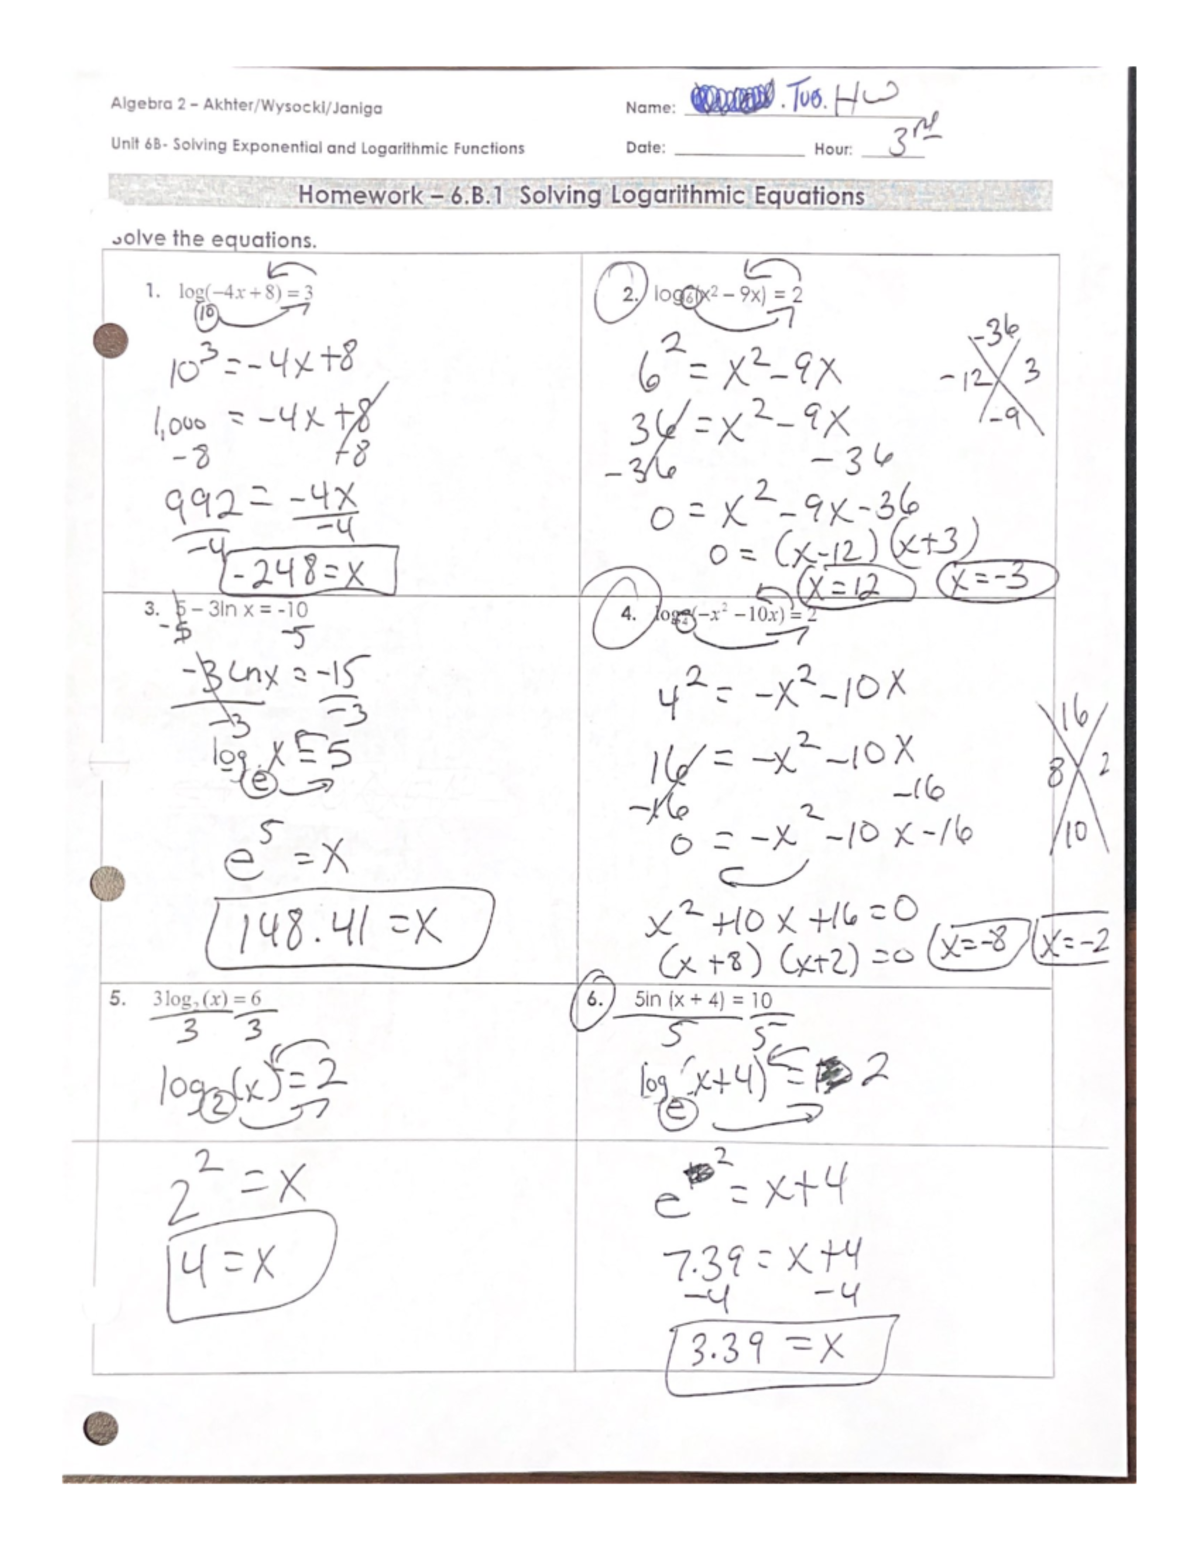 Algebra 2 – Akhter/Wysocki/Janiga
Name: . Tus. HW
Unit 6B- Solving Exponential and Logarithmic Functions
Date: Hour: 3rd
Homework – 6.B.1 Solving Logarithmic Equations
olve the equations.
1. log(−4x+8) = 3
10
10³ = -4x+8
1,000 = -4x +8
-8 +8
992 = -4x
-4 -4
-248=x
2. log₆(x² – 9x) = 2
6² = x²-9x
36 = x²-9x
-36 -36
0 = x²-9x-36
0 = (x-12)(x+3)
x=12 x=-3
-36
-12 3
-9
3. 5 – 3ln x = -10
-5 -5
-3lnx = -15
-3 -3
log e x = 5
e⁵ = x
148.41 = x
4. log₄(−x² −10x) = 2
4² = -x²-10x
16 = -x²-10x
-16 -16
0 = -x²-10x-16
x²+10x+16=0
(x+8)(x+2)=0 x=-8 x=-2
16
8 2
10
5. 3log₂(x) = 6
3 3
log₂(x) = 2
2² = x
4 = x
6. 5ln (x + 4) = 10
5 5
log e (x+4) = 2
e² = x+4
7.39 = x+4
-4 -4
3.39 = x